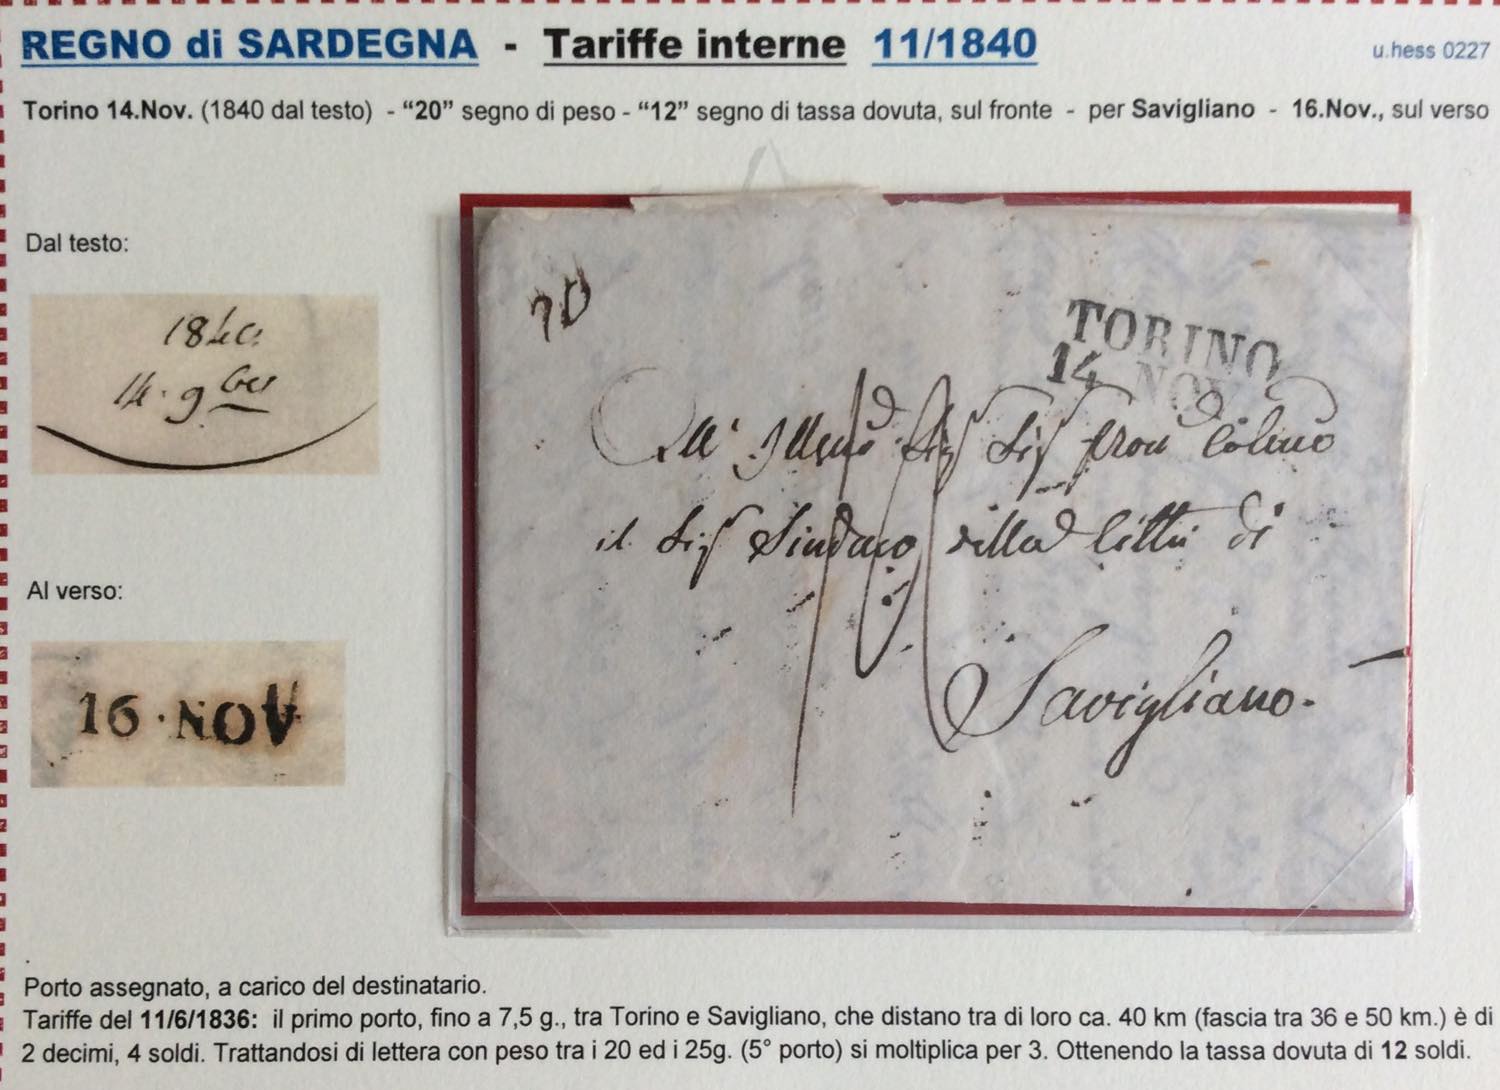 REGNO di SARDEGNA - Tariffe interne 11/1840
u.hess 0227
Torino 14.Nov. (1840 dal testo) - “20” segno di peso - “12” segno di tassa dovuta, sul fronte - per Savigliano - 16.Nov., sul verso
Dal testo:
1840
14. 9bre
Al verso:
16 · NOV
20
TORINO
14 NOV
All' Illmo Sig Sig Pron Colmo
il Sig Sindaco della Città di
Savigliano.
Porto assegnato, a carico del destinatario.
Tariffe del 11/6/1836: il primo porto, fino a 7,5 g., tra Torino e Savigliano, che distano tra di loro ca. 40 km (fascia tra 36 e 50 km.) è di
2 decimi, 4 soldi. Trattandosi di lettera con peso tra i 20 ed i 25g. (5° porto) si moltiplica per 3. Ottenendo la tassa dovuta di 12 soldi.